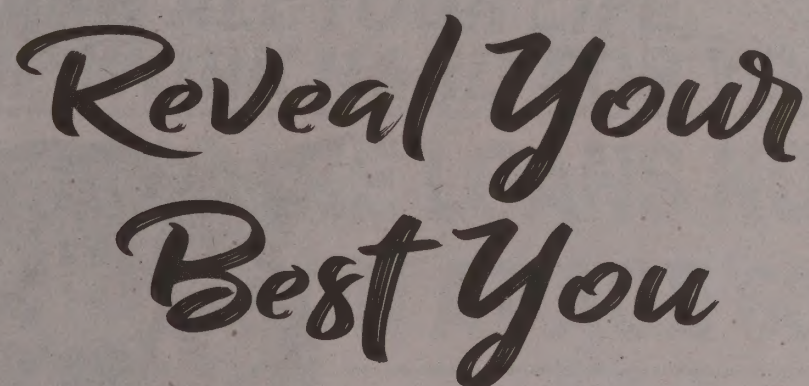 Reveal Your
Best You